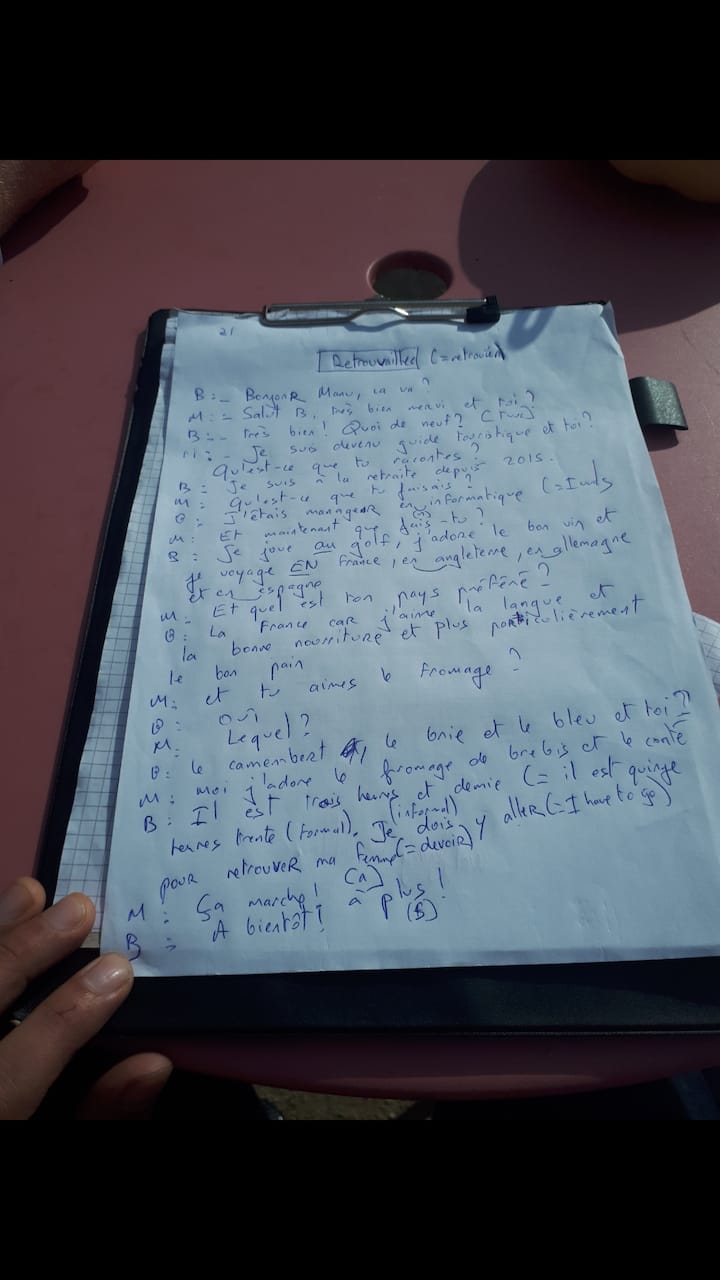 21
Retrouvailles (=retrouver)
B:- Bonjour Manu, ça va ?
M:- Salut B, très bien merci et toi ?
B:- Très bien ! Quoi de neuf ?
M:- Je suis devenu guide touristique et toi ?
Qu'est-ce que tu racontes ?
B: Je suis à la retraite depuis 2015.
M: Qu'est-ce que tu faisais ?
B: J'étais manageR en informatique
M: Et maintenant que fais-tu ?
B: Je joue au golf, j'adore le bon vin et
je voyage EN France, en angleterre, en allemagne
et en espagne
M: Et quel est ton pays préféré ?
B: La France car j'aime la langue et
la bonne nourriture et plus particulièrement
le bon pain
M: et tu aimes le fromage ?
B: OUI
M: Lequel ?
B: le camembert, le brie et le bleu et toi ?
M: moi j'adore le fromage de brebis et le comté
B: Il est trois heures et demie (= il est quinze
(informal)
heures trente (formal). Je dois y alleR (= I have to go)
pour retrouver ma femme (= devoir)
M: Ça marche ! à plus !
(a) (S)
B: A bientôt !